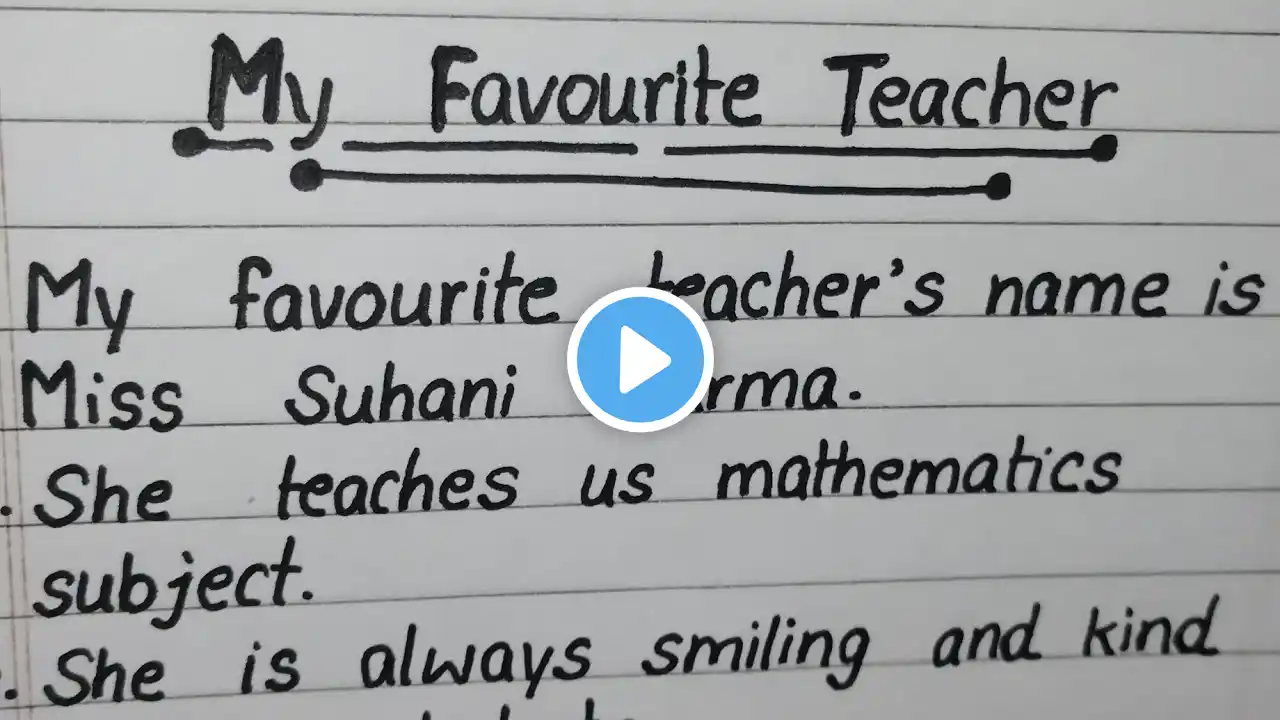 My Favourite Teacher
My favourite teacher's name is
Miss Suhani
. She teaches us mathematics
subject.
. She is always smiling and kind